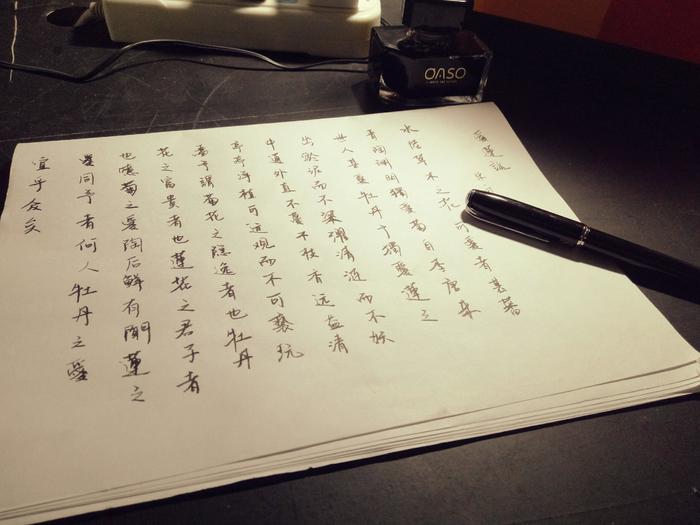 OASO
愛蓮説
水陸草木之花可愛者甚蕃
晉陶淵明獨愛菊自李唐来
世人甚愛牡丹予獨愛蓮之
出淤泥而不染濯清漣而不妖
中通外直不蔓不枝香远益清
亭亭淨植可远观而不可褻玩
焉予謂菊花之隱逸者也牡丹
花之富貴者也蓮花之君子者
也噫菊之愛陶后鮮有聞蓮之
愛同予者何人牡丹之愛
宜乎众矣